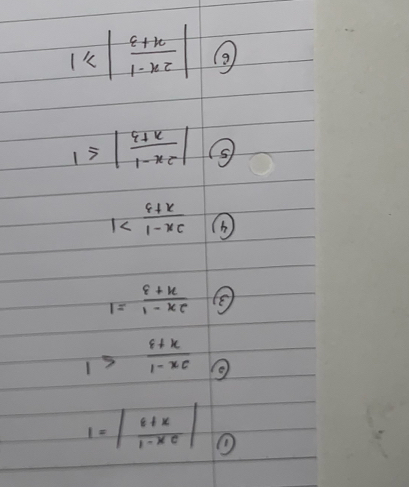 ① |2x-1/x+3| = 1
② 2x-1/x+3 ≤ 1
③ 2x-1/x+3 = 1
④ 2x-1/x+3 > 1
⑤ |2x-1/x+3| ≤ 1
⑥ |2x-1/x+3| ≥ 1